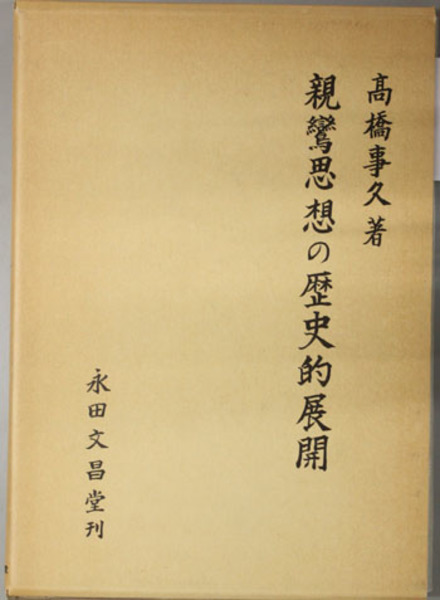 髙橋事久著
親鸞思想の歴史的展開
永田文昌堂刊